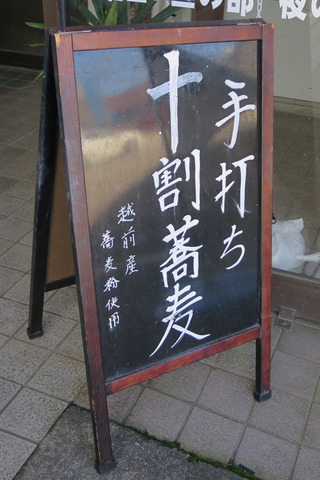 手打ち
十割蕎麦
越前産
蕎麦粉使用